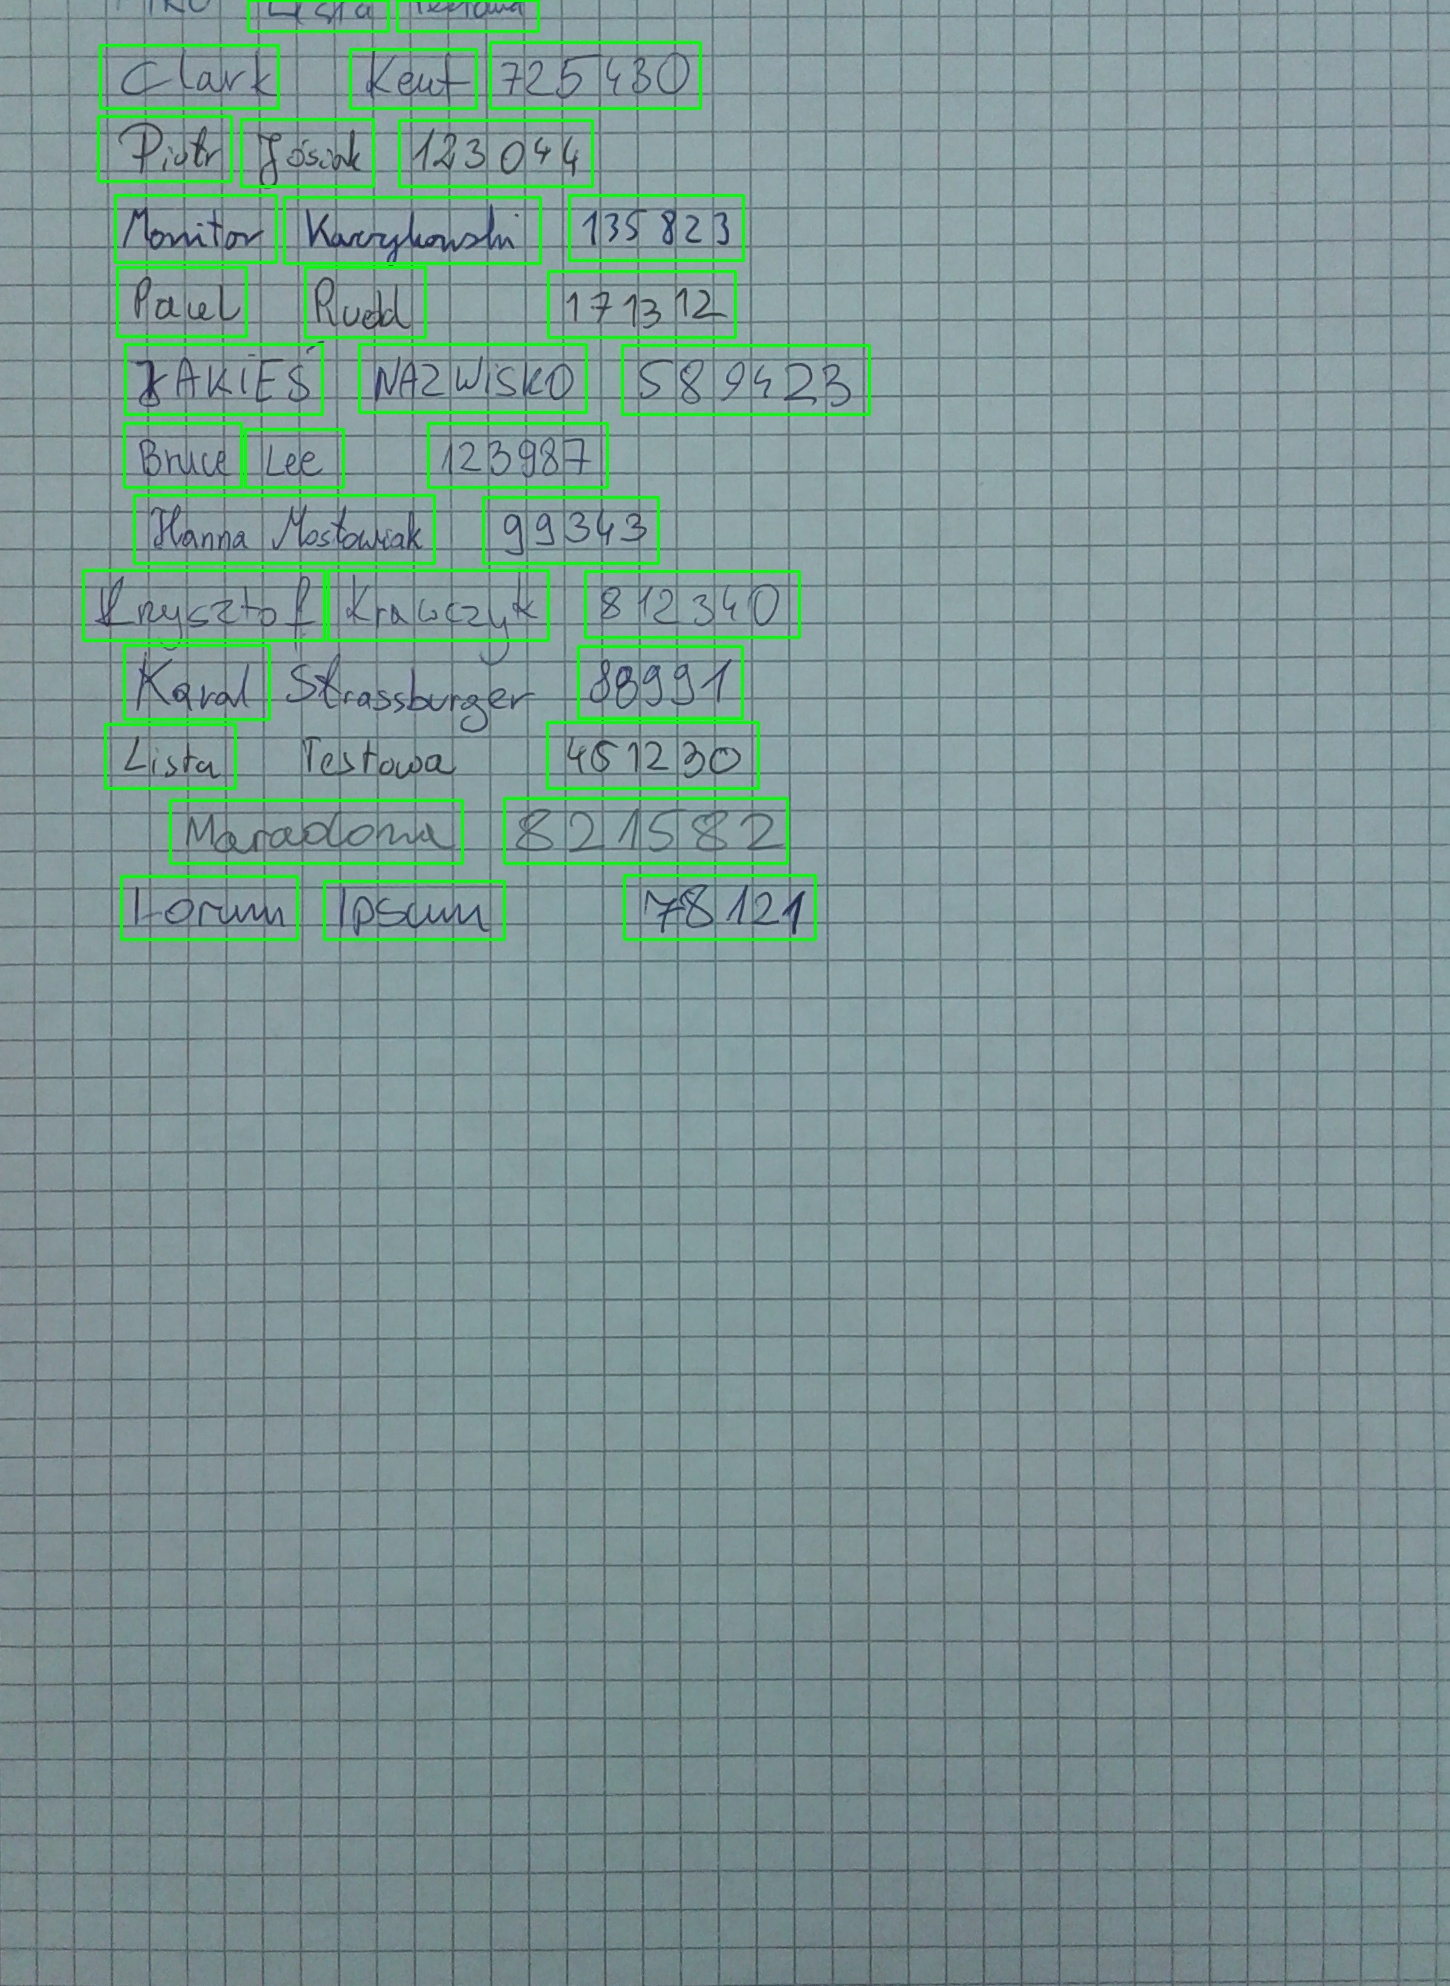 Lista Testowa
Clark Kent 725430
Piotr Jósiak 123044
Monitor Karzykowski 135823
Paul Rudd 171312
JAKIEŚ NAZWISKO 589423
Bruce Lee 123987
Hanna Mostowiak 99343
Krzysztof Krawczyk 812340
Karol Strassburger 88991
Lista Testowa 451230
Maradona 821582
Lorum Ipsum 78121